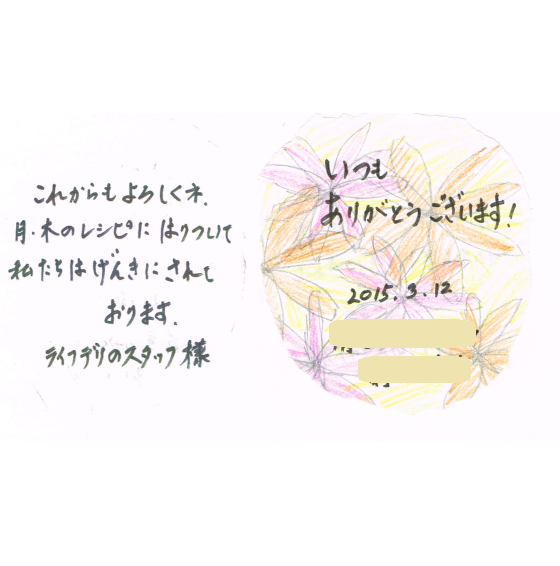 これからもよろしくネ.
月・木のレシピにはりついて
私たちはげんきにされて
おります.
ライフデリのスタッフ様
いつも
ありがとうございます!
2015.3.12